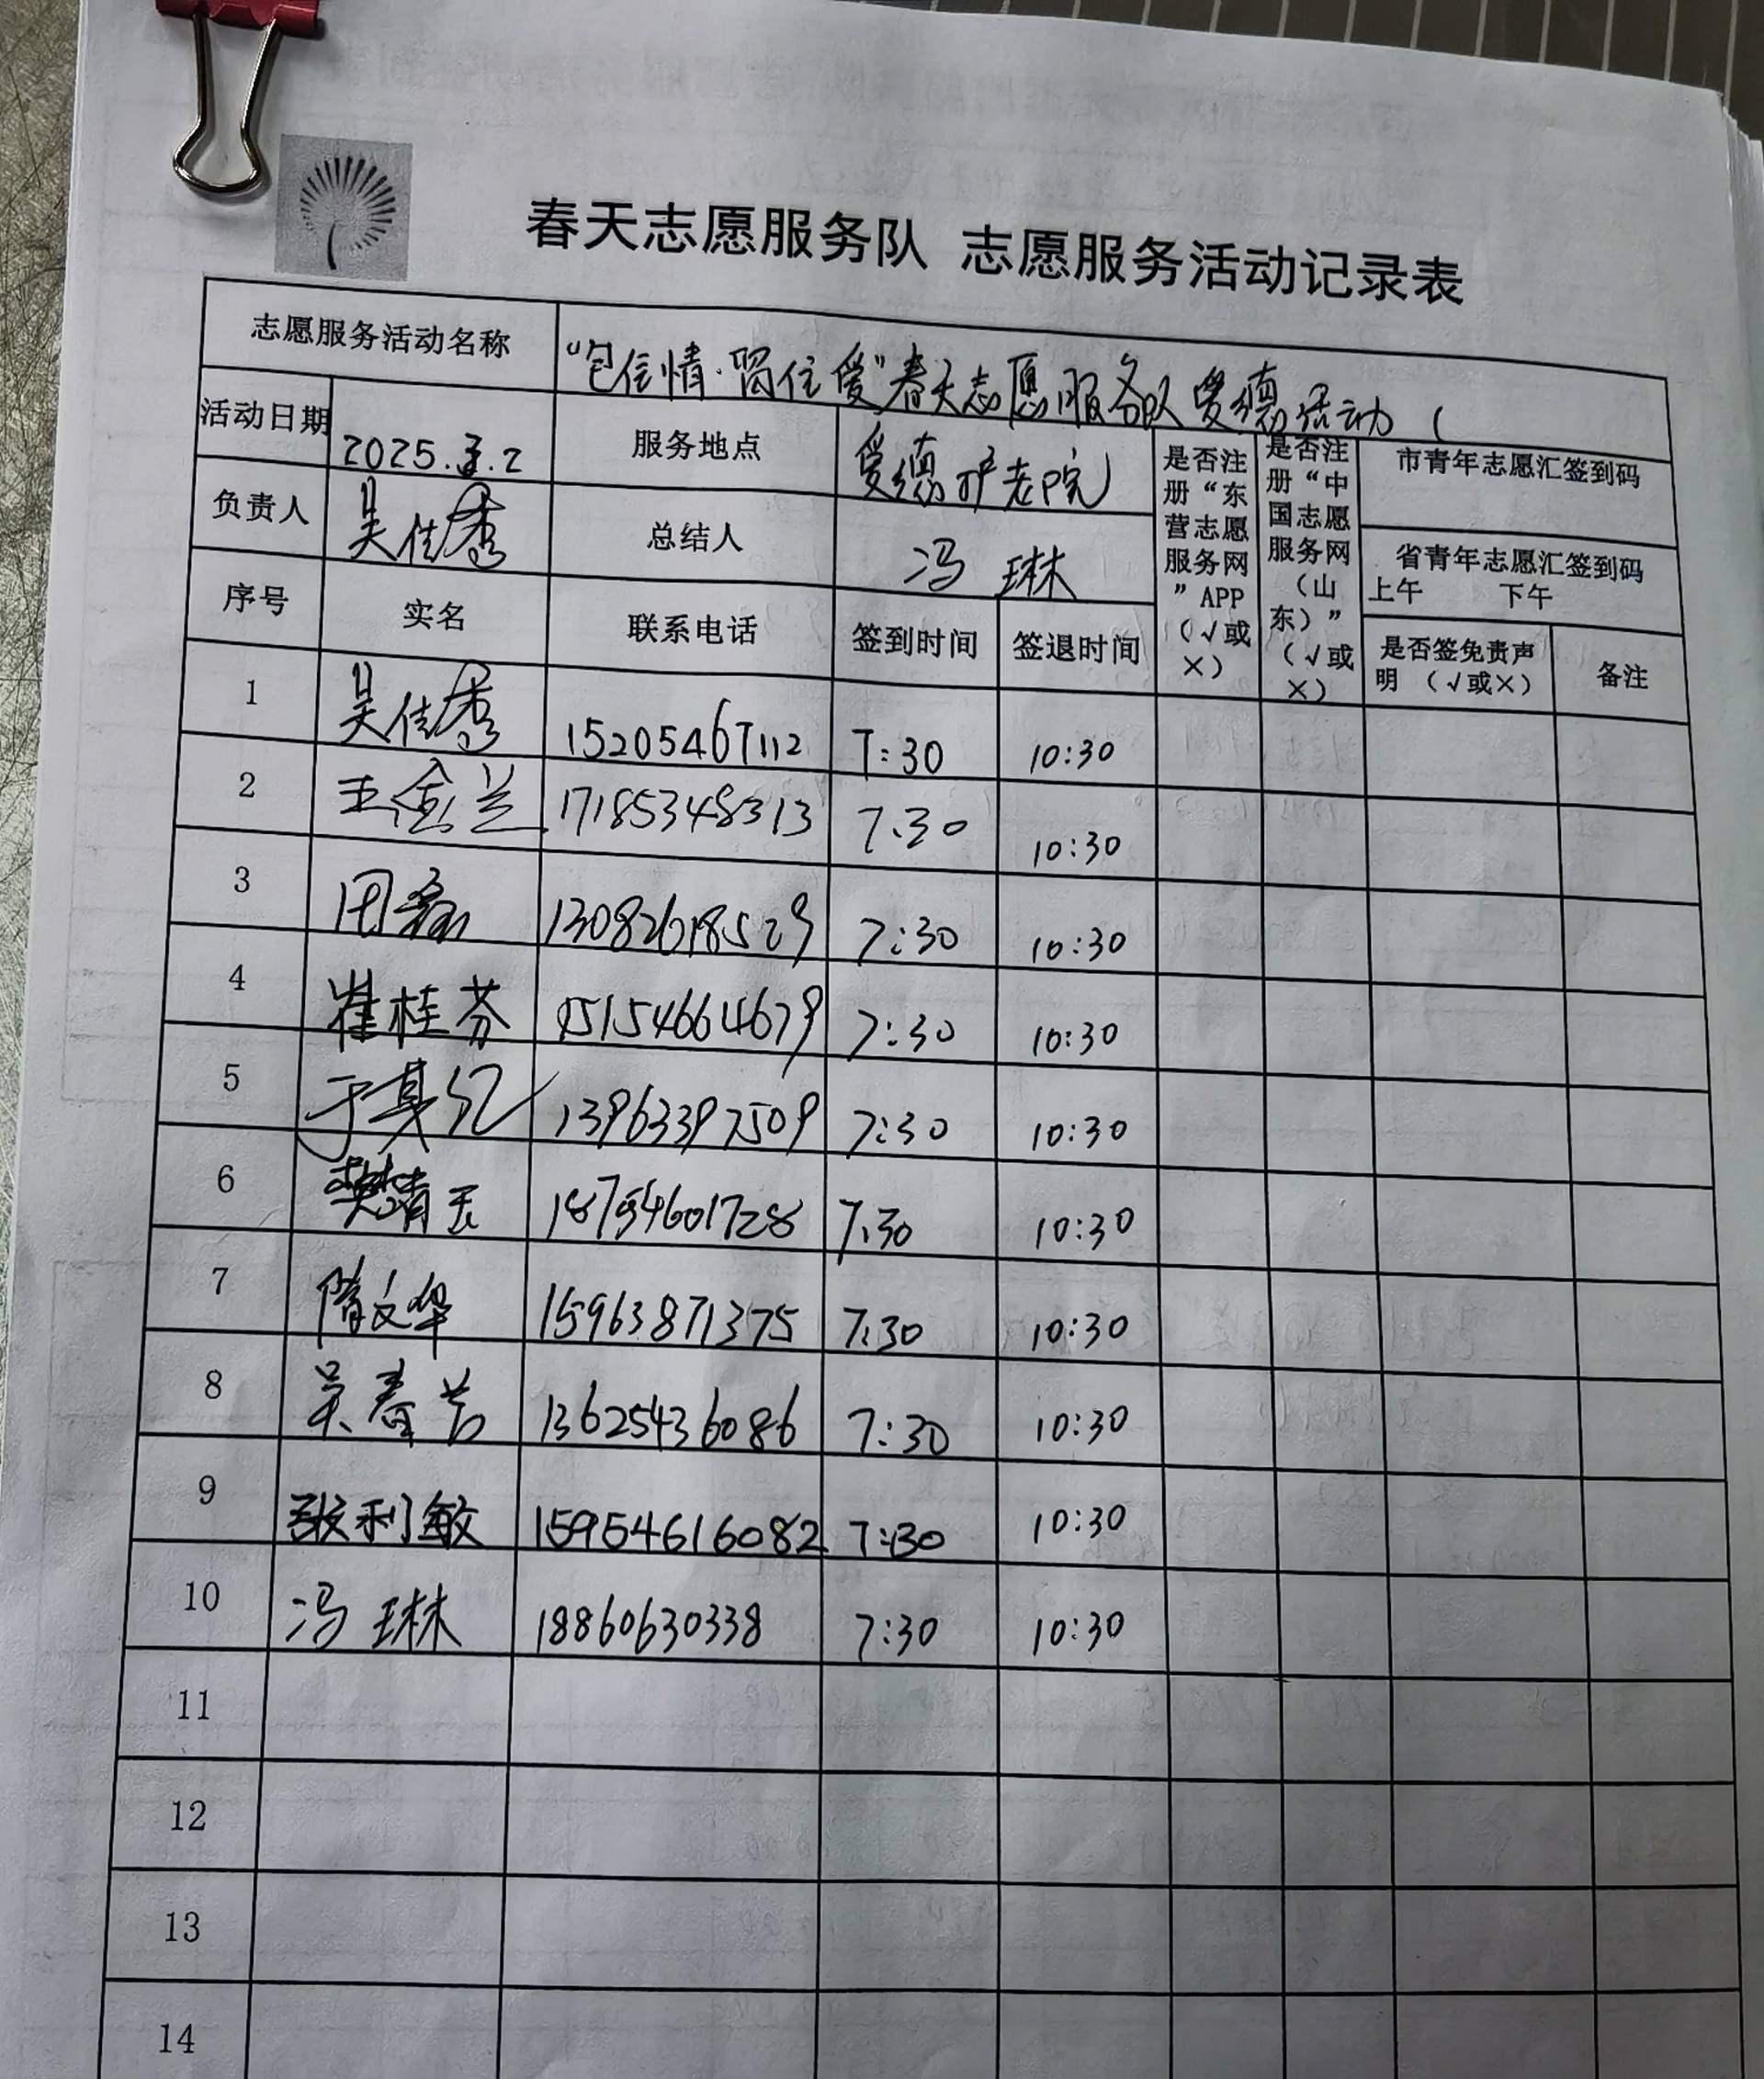 春天志愿服务队 志愿服务活动记录表
志愿服务活动名称 “包住情·留住爱”春天志愿服务队爱德活动（
活动日期 2025.3.2 服务地点 爱德护老院 是否注册“东营志愿服务网”APP（√或×） 是否注册“中国志愿服务网（山东）”（√或×） 市青年志愿汇签到码
负责人 吴佳秀 总结人 冯琳 省青年志愿汇签到码
上午 下午
序号 实名 联系电话 签到时间 签退时间 是否签免责声明（√或×） 备注
1 吴佳秀 15205467112 7:30 10:30
2 王金兰 17185348313 7:30 10:30
3 田 13082618529 7:30 10:30
4 崔桂芬 15154664679 7:30 10:30
5 于其 13963397509 7:30 10:30
6 樊靖 18754601728 7:30 10:30
7 隋文华 15963871375 7:30 10:30
8 吴春芳 13625436086 7:30 10:30
9 张利敏 15954616082 7:30 10:30
10 冯琳 18860630338 7:30 10:30
11
12
13
14